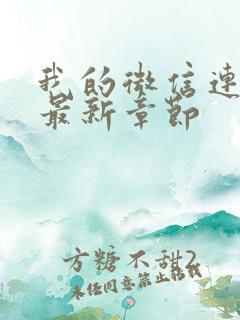 我的微信连
最新章节
方糖不甜2
未经同意禁止转载